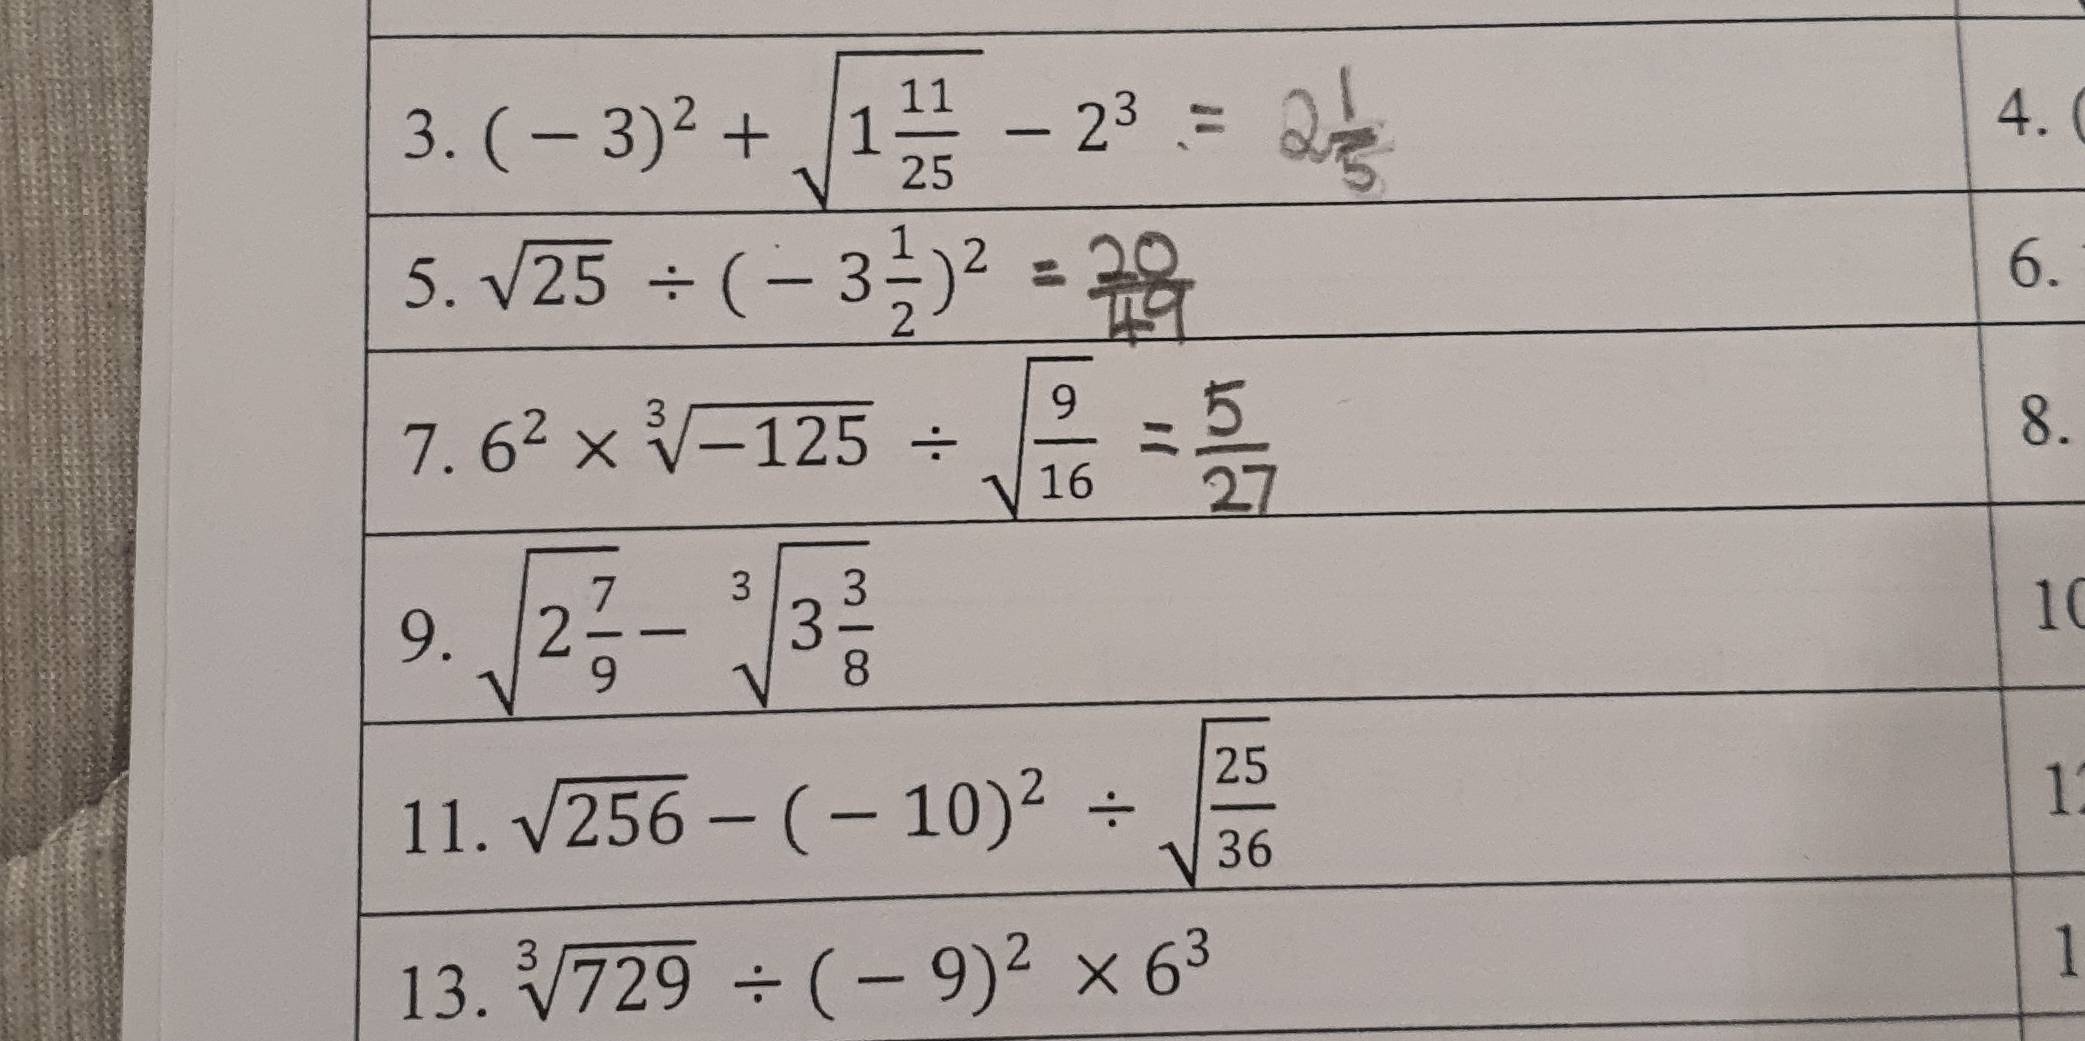 3. (-3)² + √(1 11/25) - 2³ = 2 1/5
4. (
5. √25 ÷ (-3 1/2)² = 20/49
6.
7. 6² × ∛-125 ÷ √(9/16) = 5/27
8.
9. √(2 7/9) - ∛(3 3/8)
10
11. √256 - (-10)² ÷ √(25/36)
1
13. ∛729 ÷ (-9)² × 6³
1